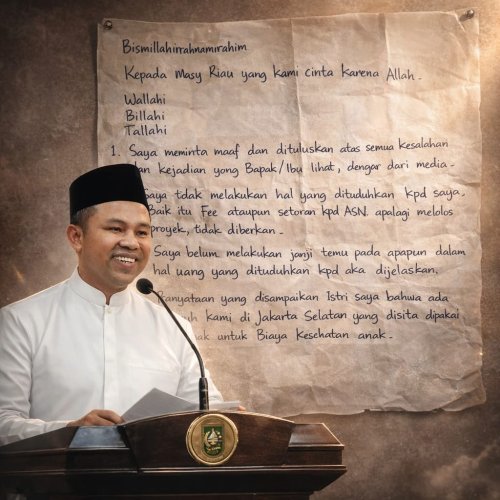 Bismillahirrahnamirahim
Kepada Masy Riau yang kami cinta karena Allah.
Wallahi
Billahi
Tallahi
1. Saya meminta maaf dan dituluskan atas semua kesalahan
dan kejadian yong Bapak/Ibu lihat, dengar dari media.
Saya tidak melakukan hal yang dituduhkan kpd saya.
Baik itu Fee ataupun setoran kpd ASN. apalagi melolos
proyek, tidak diberkan.
Saya belum melakukan janji temu pada apapun dalam
hal uang yang dituduhkan kpd aka dijelaskan.
anyataan yang disampaikan Istri saya bahwa ada
kami di Jakarta Selatan yang disita dipakai
untuk Biaya Kesehatan anak.